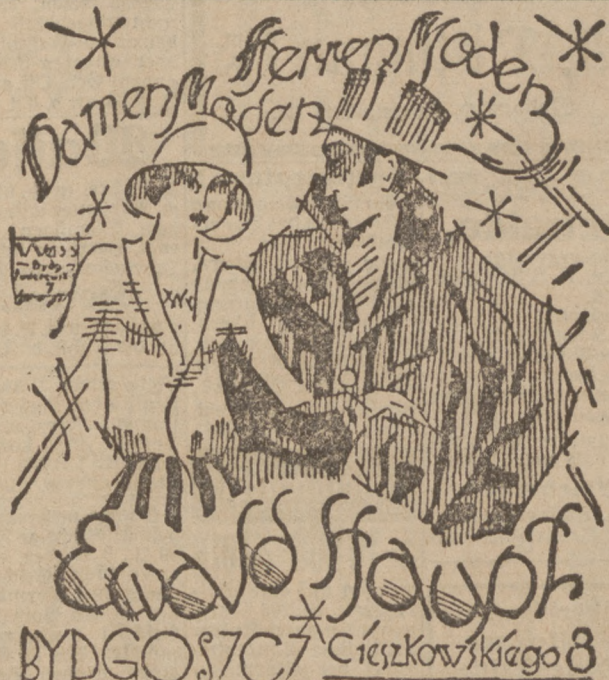 Damen Moden
Herren Moden
Ewald Haupt
BYDGOSZCZ Cieszkowskiego 8